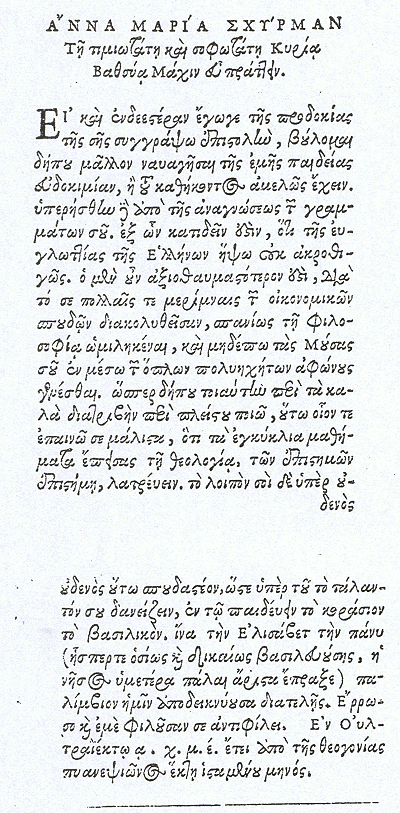 ἌΝΝΑ ΜΑΡΊΑ ΣΧΎΡΜΑΝ
Τῇ τιμιωτάτῃ καὶ σοφωτάτῃ Κυρίᾳ
Βαθσύᾳ Μάχιν εὖ πράττειν.
Εἰ καὶ ἐνδεεστέραν ἔγωγε τῆς προδοκίας
τῆς σῆς συγγράψω ἐπιστολὴν, βούλομαι
δήπου μᾶλλον ναυαγῆσαι τῆς ἐμῆς παιδείας
εὐδοκιμίαν, ἢ τοῦ καθήκοντος ἀμελῶς ἔχειν.
ὑπερήσθην γὰρ ἀπὸ τῆς ἀναγνώσεως τῶν γραμ-
μάτων σοῦ. ἐξ ὧν κατιδεῖν ἔστιν, ὅτι τῆς εὐ-
γλωττίας τῆς Ἑλλήνων ἥψω οὐκ ἀκροθι-
γῶς. ὃ μὲν οὖν ἀξιοθαυμαστότερον ἐστι, διὰ
τό σε πολλαῖς τε μερίμναις τῶν οἰκονομικῶν
σπουδῶν διακολυθεῖσαν, σπανίως τῇ φιλο-
σοφίᾳ ὡμιληκέναι, καὶ μηδέπω τὰς Μούσας
σοῦ ἐν μέσω τῶν ὅπλων πολυηχήτων ἀφώνους
γενέσθαι. ὥσπερ δήπου τοιαύτην περὶ τὰ κα-
λὰ διατριβὴν περὶ πλείστου ποιῶ, οὕτω οἷον τε
ἐπαινῶ σε μάλιστα, ὅτι τὰ ἐγκύκλια μαθή-
ματα ἔπεισας τῇ θεολογίᾳ, τῶν ἐπιστημῶν
ἐπιστήμῃ, λατρεύειν. τὸ λοιπὸν σοὶ δὲ ὑπὲρ οὐ-
δενὸς
οὐδενὸς οὕτω σπουδαστέον, ὥστε ὑπὲρ τοῦ τὸ τάλαν-
τόν σου δανείζειν, ἐν τῷ παιδεύειν τὸ κοράσιον
τὸ βασιλικὸν. ἵνα τὴν Ἐλισάβετ τὴν πάνυ
(ἧσπερτε ὁσίως καὶ δικαίως βασιλευούσης, ἡ
νῆσος ὑμετέρα πάλαι ἄριστα ἔπραξε) πα-
λίμβιον ἡμῖν ἀποδεικνύουσα διατελῇς. Ἔρρω-
σο καὶ ἐμὲ φιλοῦσαν σε ἀντιφίλει. Ἐν Οὐλ-
τραϊέκτω α. χ. μ. έ. ἔτει ἀπὸ τῆς θεογονίας
πυανεψιῶνος ἕκτῃ ἱσταμένου μηνός.